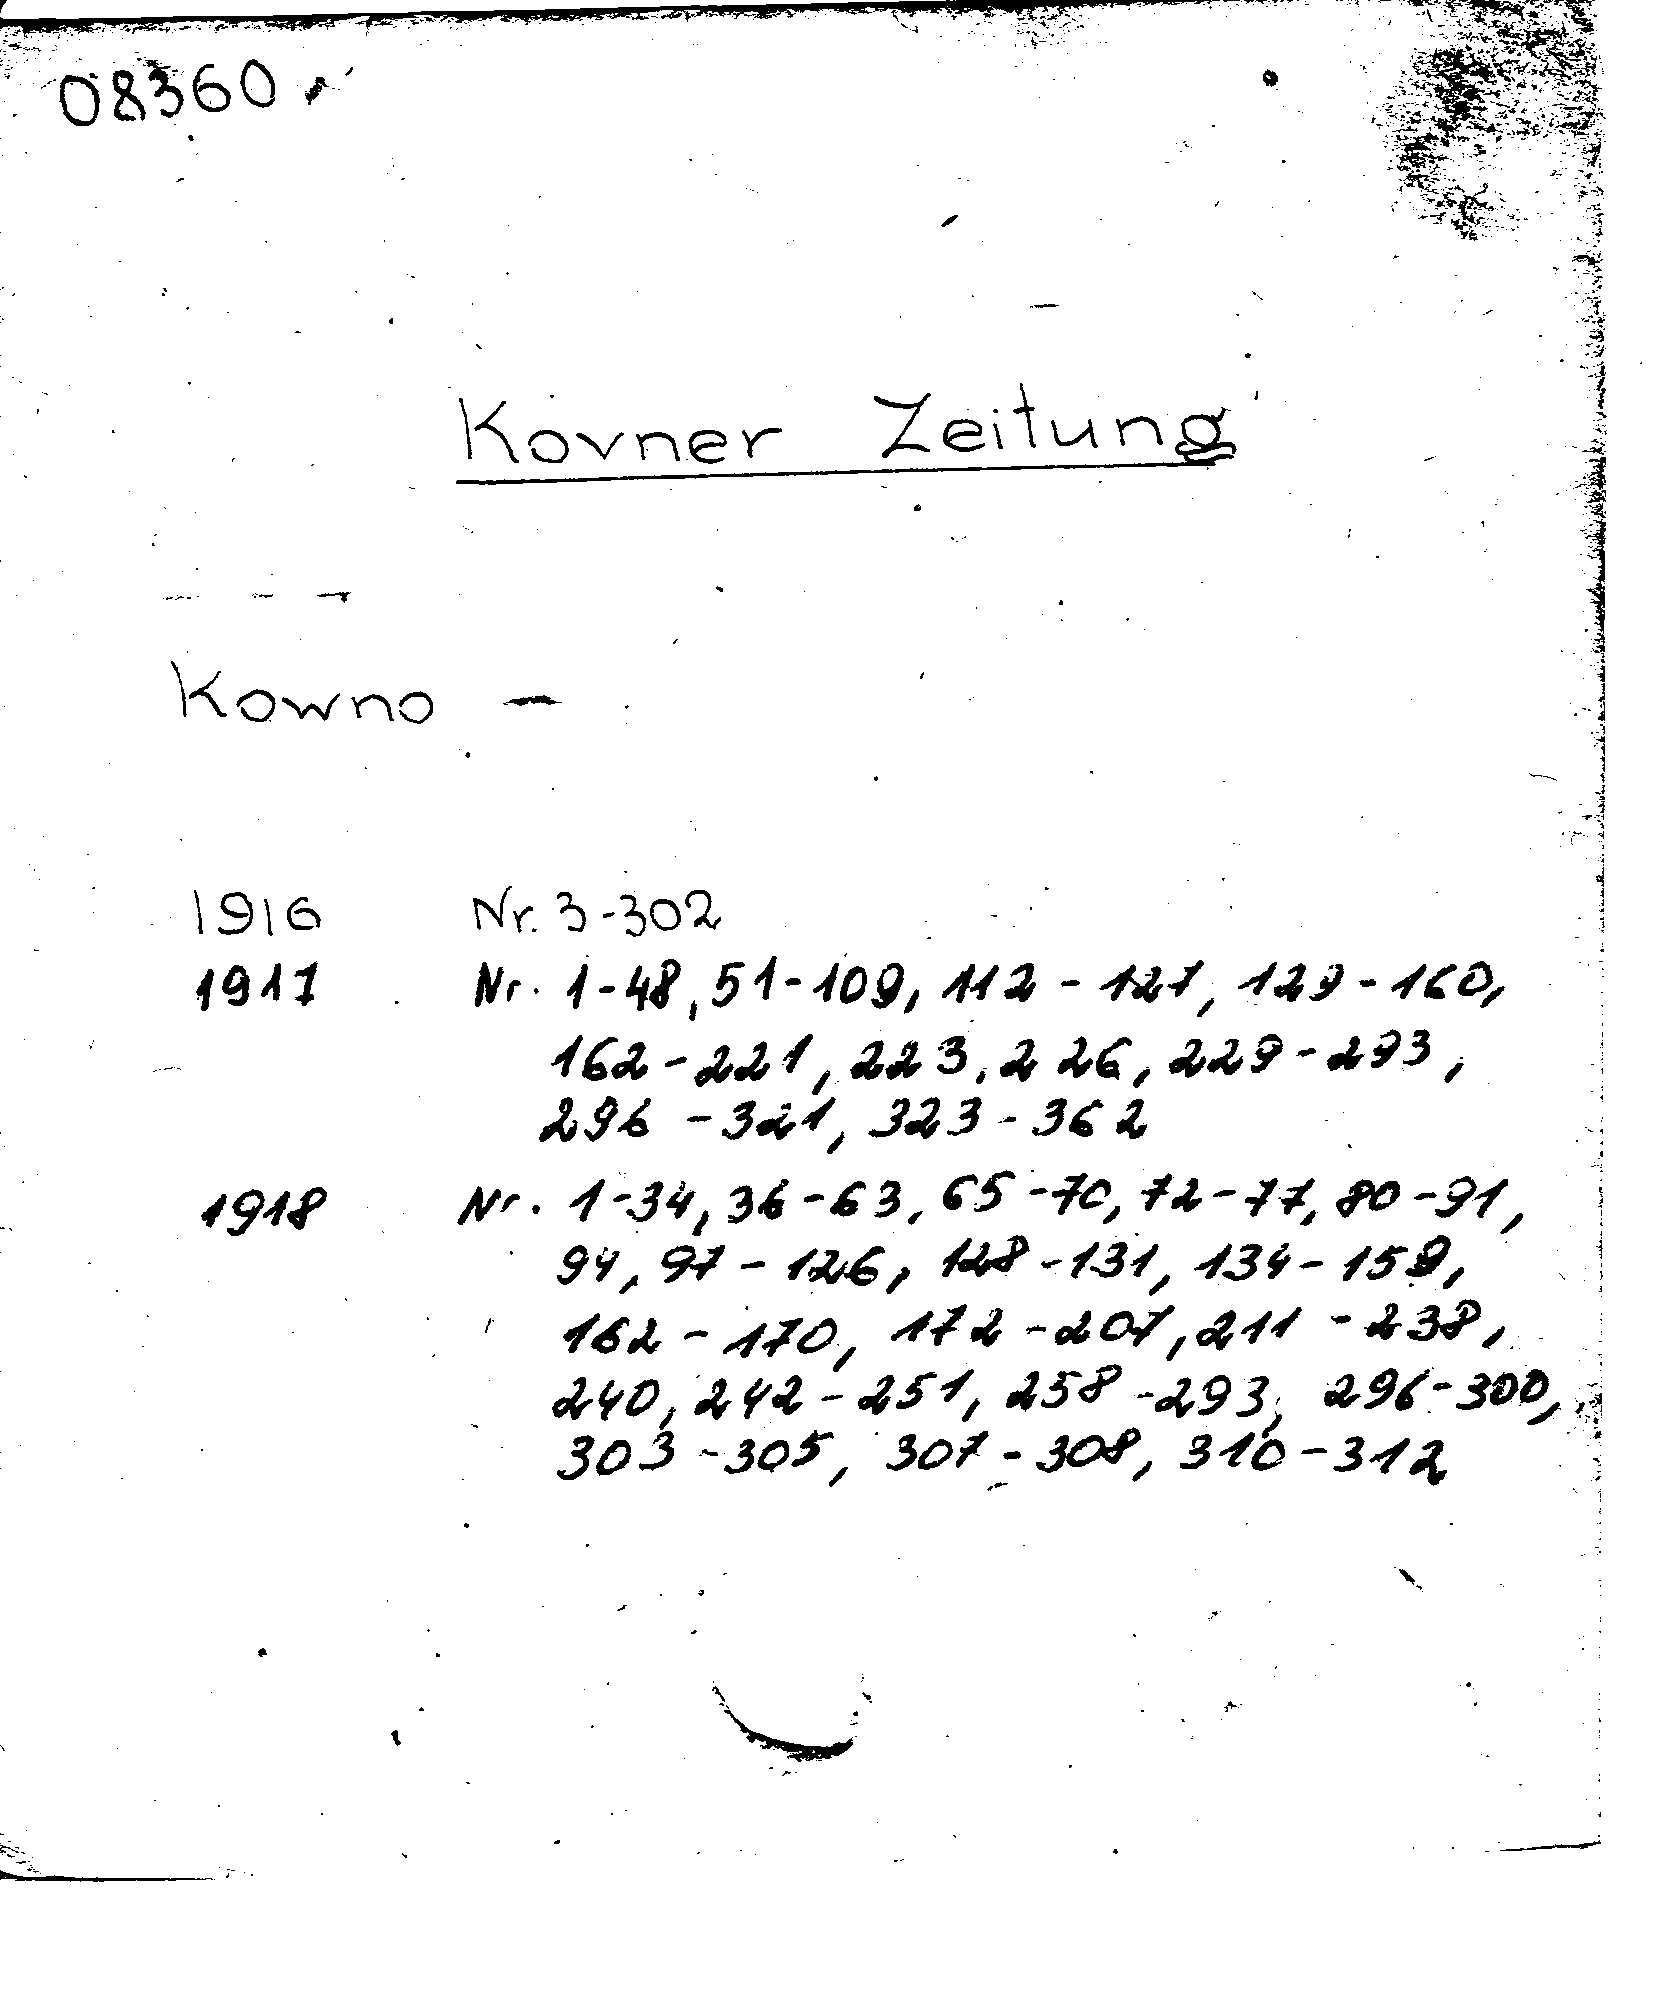 08360
Kovner Zeitung
Kowno —
1916 Nr. 3-302
1917 Nr. 1-48, 51-109, 112-127, 129-160,
162-221, 223, 226, 229-293,
296-321, 323-362
1918 Nr. 1-34, 36-63, 65-70, 72-77, 80-91,
94, 97-126, 128-131, 134-159,
162-170, 172-207, 211-238,
240, 242-251, 258-293, 296-300,
303-305, 307-308, 310-312